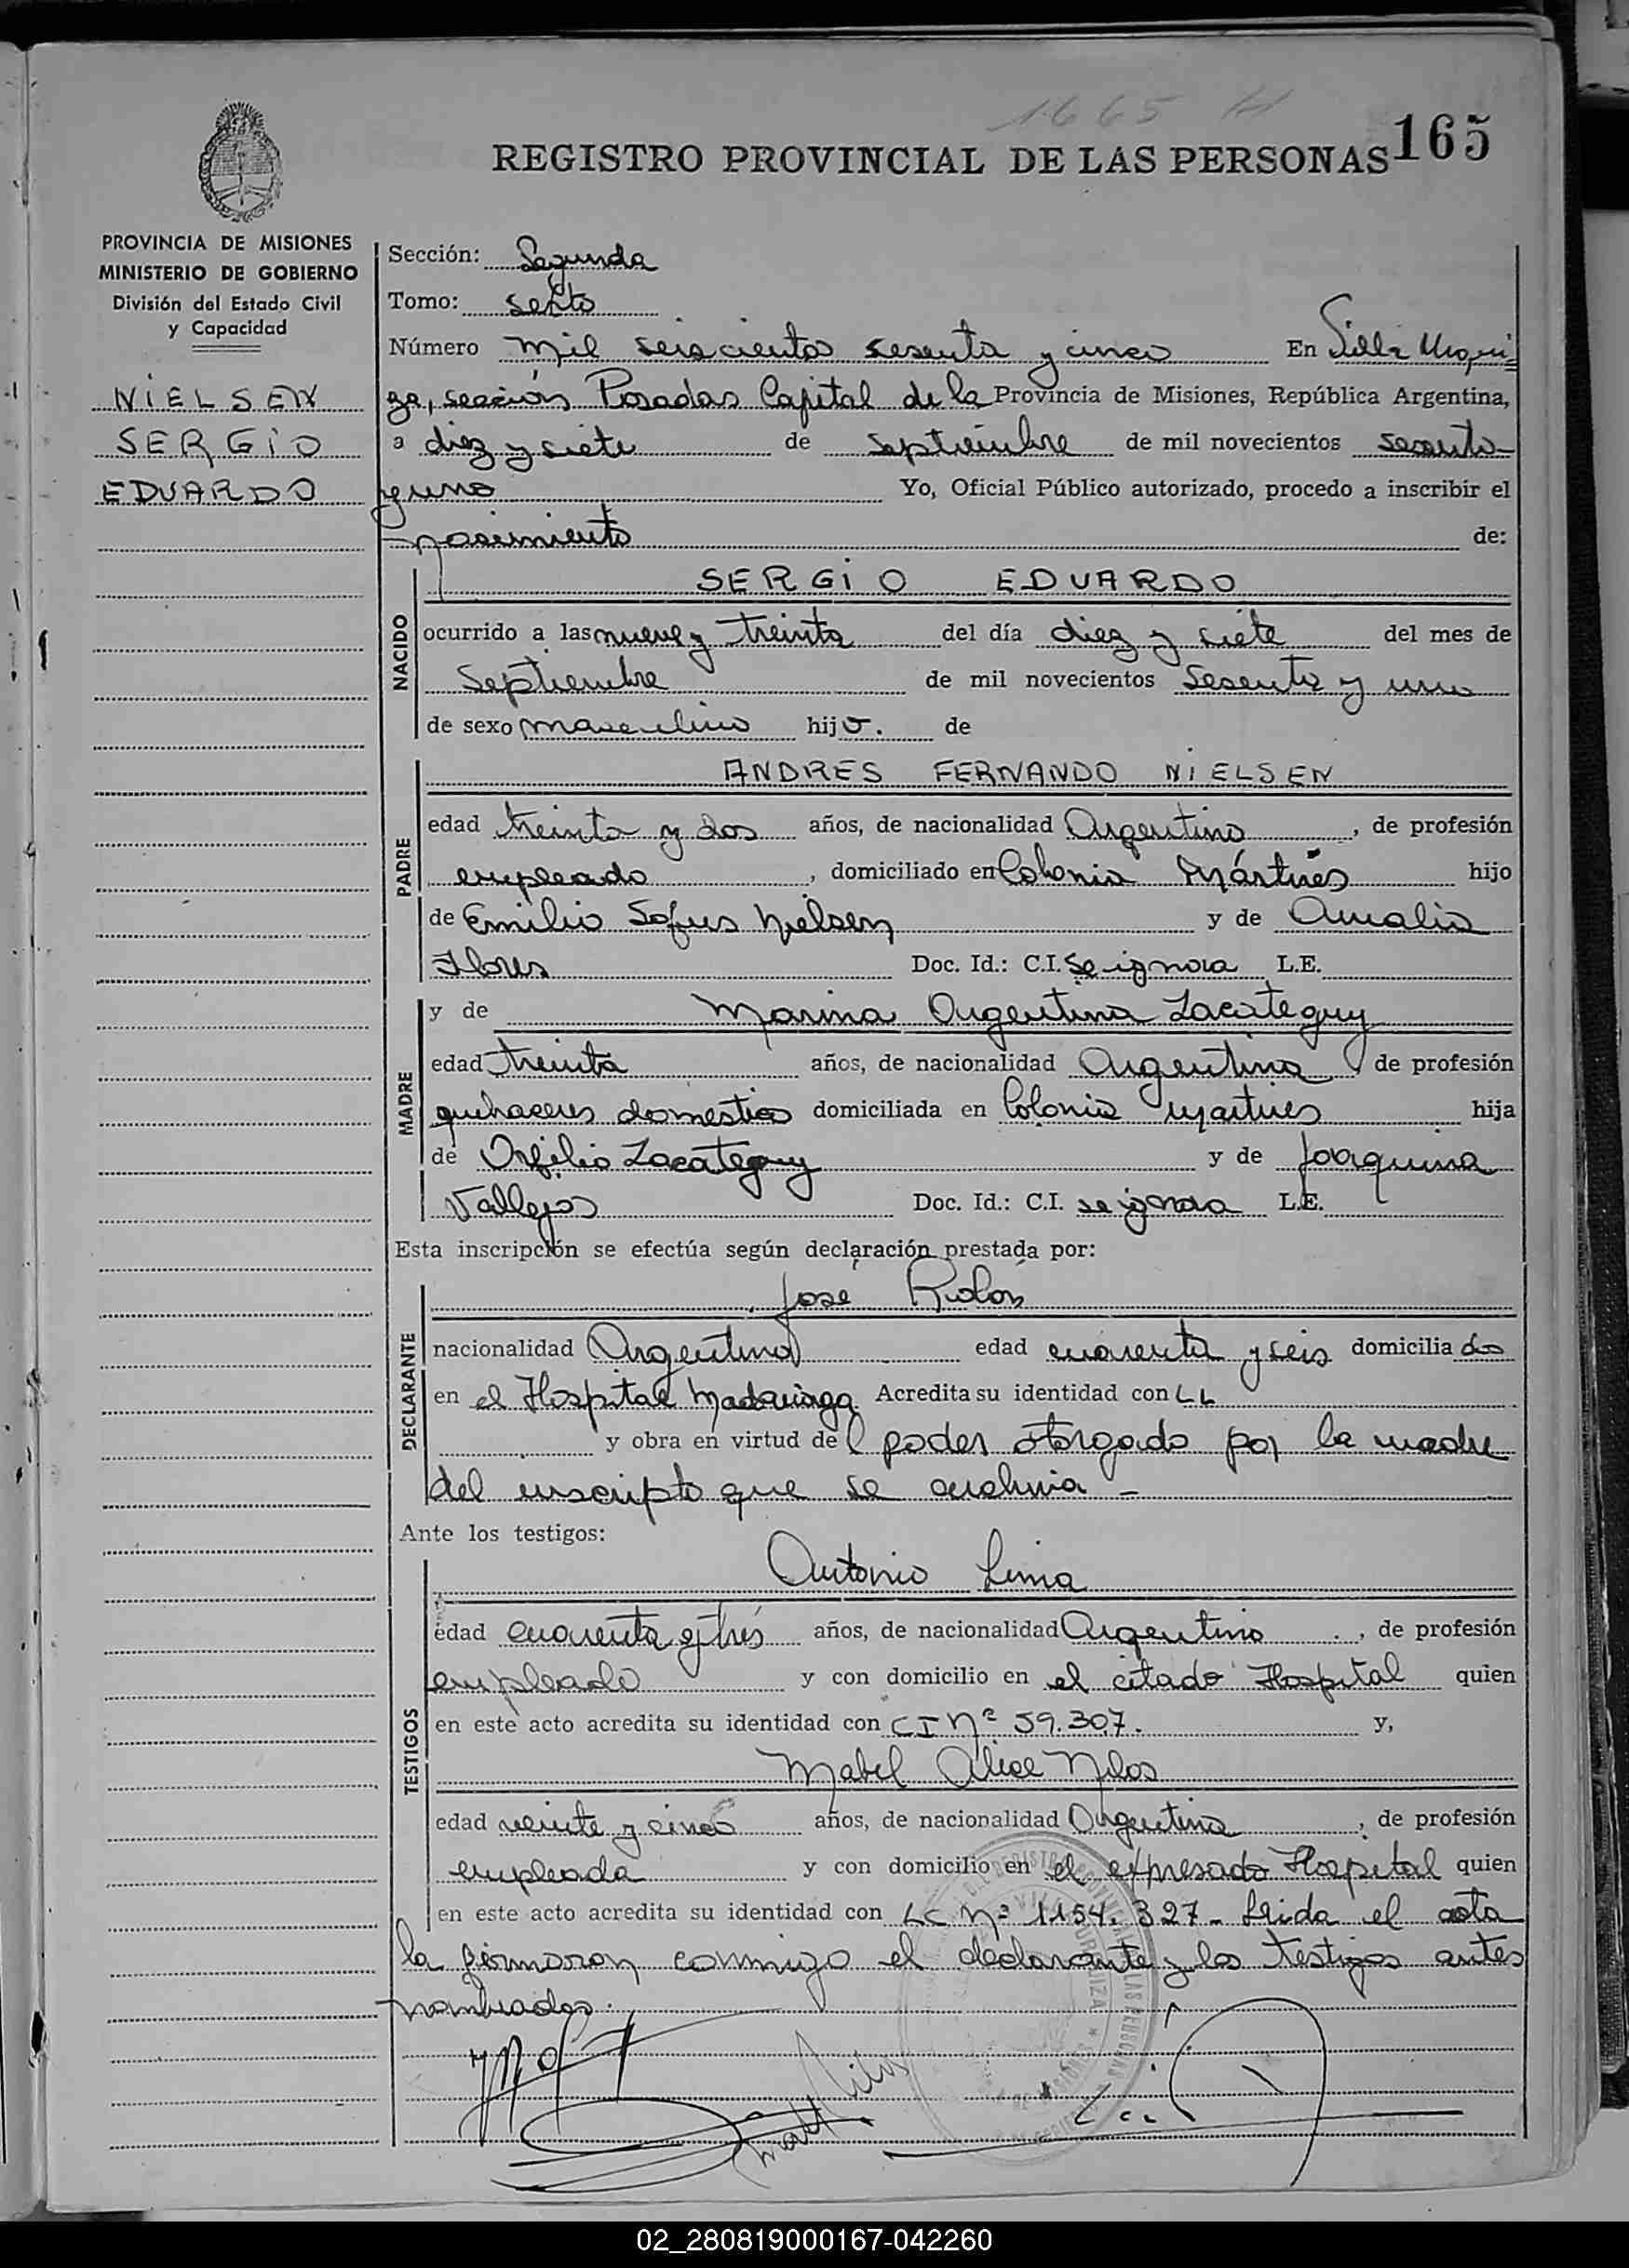 1665 H
REGISTRO PROVINCIAL DE LAS PERSONAS 165
PROVINCIA DE MISIONES
MINISTERIO DE GOBIERNO
División del Estado Civil
y Capacidad
NIELSEN
SERGIO
EDUARDO
Sección: Segunda
Tomo: sexto
Número mil seiscientos sesenta y cinco En Villa Urqui
za, sección Posadas Capital de la Provincia de Misiones, República Argentina,
a diez y siete de septiembre de mil novecientos sesenta
y uno Yo, Oficial Público autorizado, procedo a inscribir el
nacimiento de:
NACIDO
SERGIO EDUARDO
ocurrido a las nueve y treinta del día diez y siete del mes de
Septiembre de mil novecientos sesenta y uno
de sexo masculino hijo. de
PADRE
ANDRES FERNANDO NIELSEN
edad treinta y dos años, de nacionalidad Argentino, de profesión
empleado, domiciliado en Colonia Mártires hijo
de Emilio Sofus Nielsen y de Amalia
Flores Doc. Id.: C.I. Se ignora L.E.
MADRE
y de Marina Argentina Zacateguy
edad treinta años, de nacionalidad Argentina, de profesión
quehaceres domesticos domiciliada en Colonia Martires hija
de Orfilio Zacateguy y de Joaquina
Vallejos Doc. Id.: C.I. se ignora L.E.
Esta inscripción se efectúa según declaración prestada por:
DECLARANTE
José Rolón
nacionalidad Argentina edad cuarenta y seis domiciliado
en el Hospital Madariaga Acredita su identidad con
y obra en virtud del poder otorgado por la madre
del inscripto que se archiva -
Ante los testigos:
TESTIGOS
Antonio Lima
edad cuarenta y tres años, de nacionalidad Argentino, de profesión
empleado y con domicilio en el citado Hospital quien
en este acto acredita su identidad con CI Nº 59.307. y,
Mabel Alice
edad veinte y cinco años, de nacionalidad Argentina, de profesión
empleada y con domicilio en el expresado Hospital quien
en este acto acredita su identidad con LC Nº 1154.327- Leida el acta
la firmaron conmigo el declarante y los testigos antes
nombrados.
02_280819000167-042260